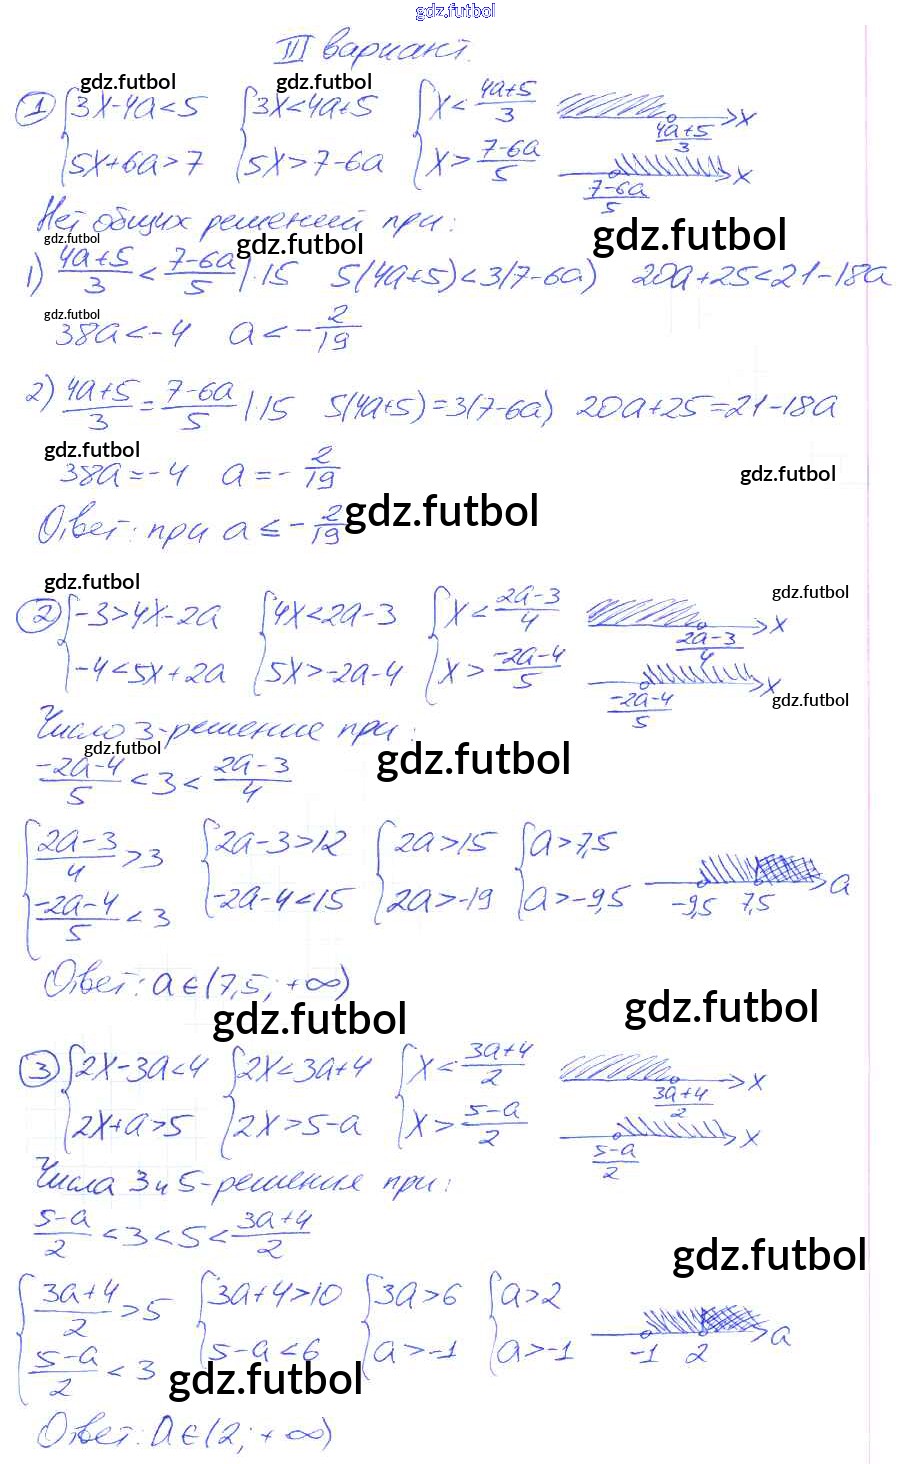 gdz.futbol
III вариант.
gdz.futbol gdz.futbol
① {3x-4a<5 {3x<4a+5 {x<(4a+5)/3 (4a+5)/3 x
{5x+6a>7 {5x>7-6a {x>(7-6a)/5 (7-6a)/5 x
Нет общих решений при:
gdz.futbol gdz.futbol gdz.futbol
1) (4a+5)/3 < (7-6a)/5 |·15 5(4a+5)<3(7-6a) 20a+25<21-18a
gdz.futbol
38a<-4 a<-2/19
2) (4a+5)/3 = (7-6a)/5 |·15 5(4a+5)=3(7-6a) 20a+25=21-18a
gdz.futbol
38a=-4 a=-2/19
gdz.futbol
Ответ: при a≤-2/19
gdz.futbol
gdz.futbol gdz.futbol
② {-3>4x-2a {4x<2a-3 {x<(2a-3)/4 (2a-3)/4 x
{-4<5x+2a {5x>-2a-4 {x>(-2a-4)/5 (-2a-4)/5 x
gdz.futbol
Число 3-решение при:
gdz.futbol gdz.futbol
(-2a-4)/5 < 3 < (2a-3)/4
{(2a-3)/4 > 3 {2a-3>12 {2a>15 {a>7,5
{(-2a-4)/5 < 3 {-2a-4<15 {2a>-19 {a>-9,5 -9,5 7,5 a
Ответ: a∈(7,5; +∞)
gdz.futbol gdz.futbol
③ {2x-3a<4 {2x<3a+4 {x<(3a+4)/2 (3a+4)/2 x
{2x+a>5 {2x>5-a {x>(5-a)/2 (5-a)/2 x
Числа 3 и 5-решение при:
(5-a)/2 <3<5< (3a+4)/2
gdz.futbol
{(3a+4)/2 > 5 {3a+4>10 {3a>6 {a>2
{(5-a)/2 < 3 {5-a<6 {a>-1 {a>-1 -1 2 a
gdz.futbol
Ответ: a∈(2; +∞)